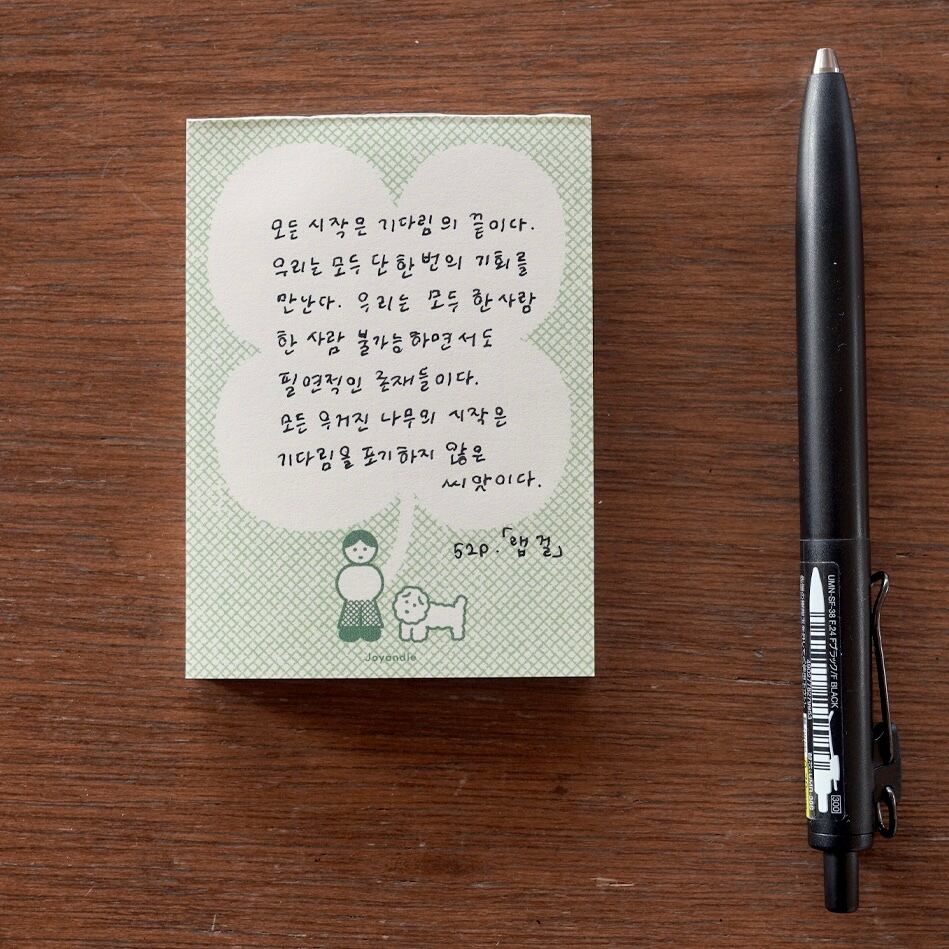 모든 시작은 기다림의 끝이다.
우리는 모두 단 한 번의 기회를
만난다. 우리는 모두 한 사람
한 사람 불가능하면서도
필연적인 존재들이다.
모든 우거진 나무의 시작은
기다림을 포기하지 않은
씨앗이다.
52p.「랩 걸」
Joyandie
UMN-SF-38 F.24 Fブラック/F BLACK
300